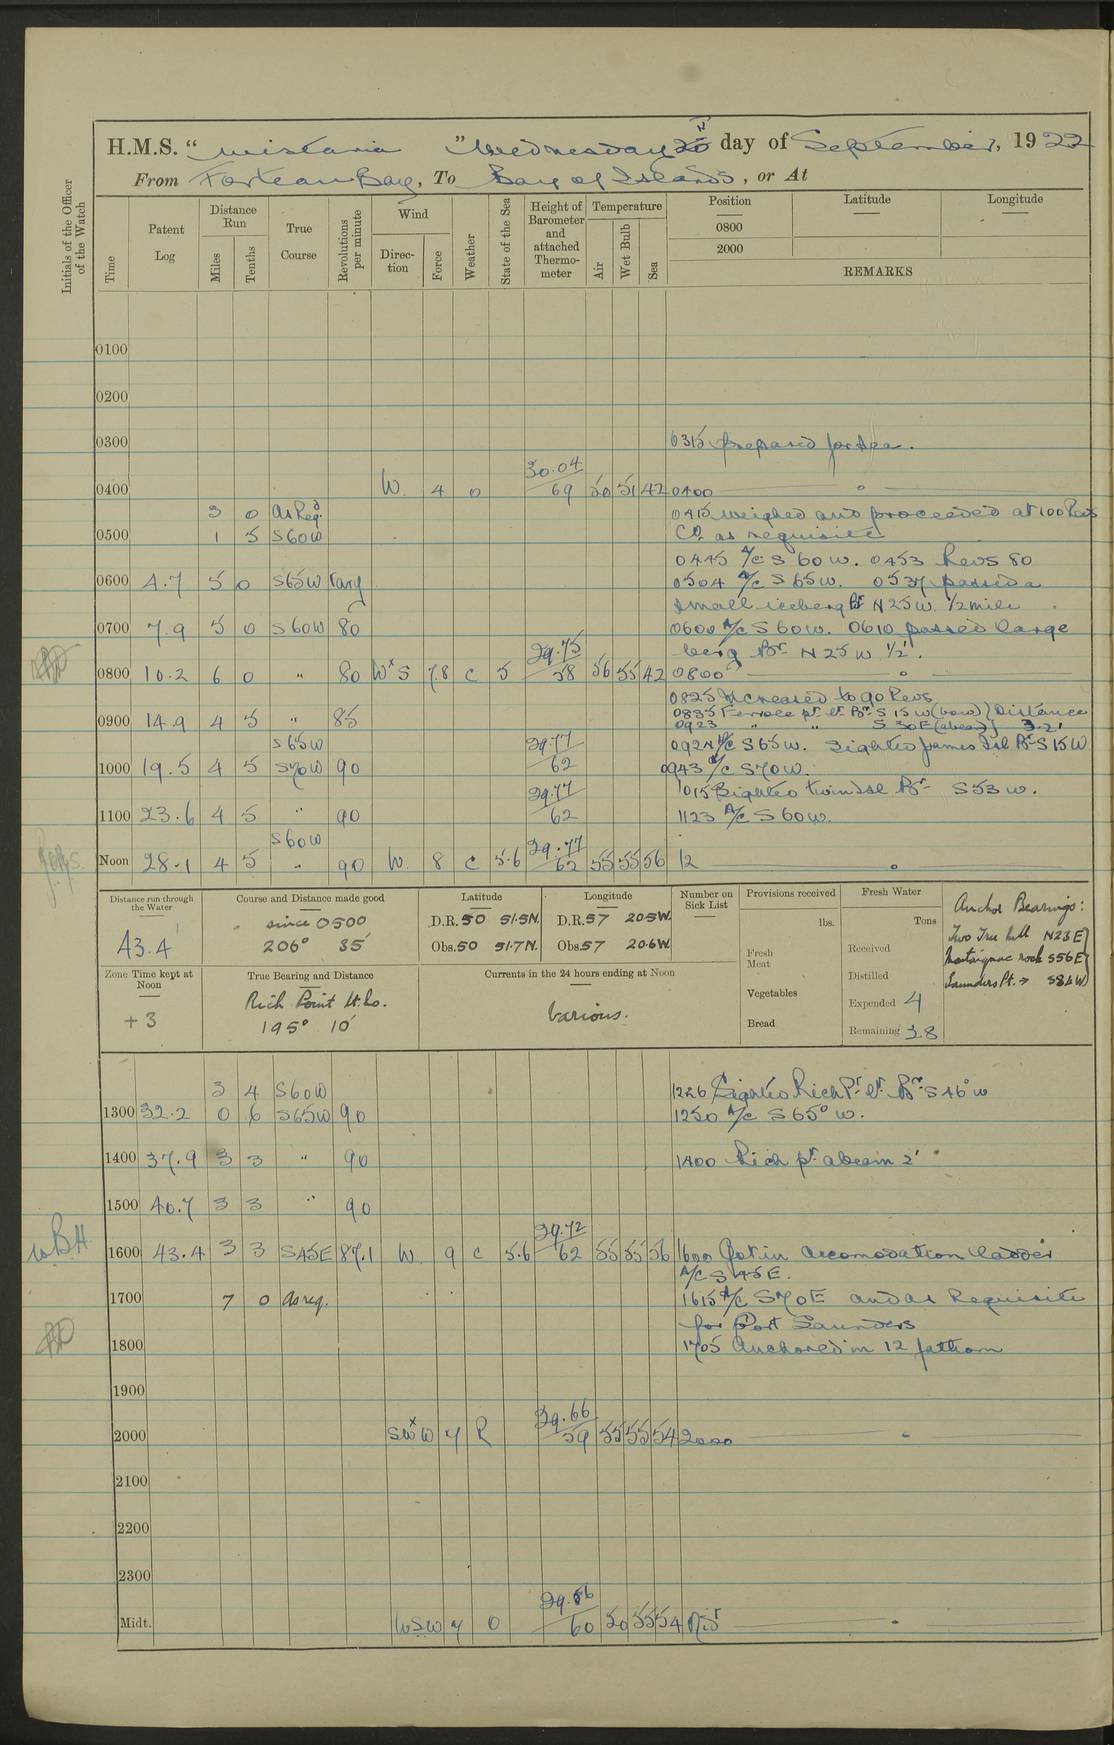 H.M.S. “ Wistaria ” Wednesday 20th day of September, 1922
From Forteau Bay, To Bay of Islands, or At
Initials of the Officer of the Watch
Time
Patent Log
Distance Run
Miles
Tenths
True Course
Revolutions per minute
Wind
Direction
Force
Weather
State of the Sea
Height of Barometer and attached Thermometer
Temperature
Air
Wet Bulb
Sea
Position
0800
2000
Latitude
Longitude
REMARKS
0100
0200
0300 0315 Prepared for Sea.
0400 W. 4 o 30.04/69 50 51 42 0400
3 0 As Reqd. 0415 Weighed and proceeded at 100 Revs
0500 1 5 S60W Co. as requisite
0445 A/C S 60 W. 0453 Revs 80
0600 4.7 5 0 S65W Vary 0504 A/C S 65 W. 0537 passed a
small iceberg Br N25W. 1/2 mile
0700 7.9 5 0 S60W 80 0600 A/C S 60W. 0610 passed large
berg Br N 25 W 1/2'.
0800 10.2 6 0 " 80 WxS 7.8 c 5 29.75/58 56 55 42 0800
0825 Increased to 90 Revs
0900 14.9 4 5 " 85 0835 Ferrole pt. lt. Br S 15 W (bow) } Distance
0923 " " S 30 E (abeam) } 3.2'
S65W 29.77/62 0924 A/C S 65 W. Sighted James Isl Br S 15 W
1000 19.5 4 5 S70W 90 0943 A/C S70W.
29.77/62 1015 Sighted twin Isl Br S53W.
1100 23.6 4 5 " 90 1123 A/C S 60W.
S60W
Noon 28.1 4 5 " 90 W. 8 c 5.6 29.77/62 55 55 56 12
Distance run through the Water
43.4
Course and Distance made good
since 0500
206° 35'
Latitude
D.R. 50 51.5N.
Obs. 50 51.7N.
Longitude
D.R. 57 20.5W.
Obs. 57 20.6W.
Number on Sick List
Provisions received
lbs.
Fresh Meat
Vegetables
Bread
Fresh Water
Tons
Received
Distilled
Expended 4
Remaining 38
Anchor Bearings:
Two Tree hill N23E
rock S56E
Saunders Pt. → S86W
Zone Time kept at Noon
+3
True Bearing and Distance
Rich Point Lt. Ho.
195° 10'
Currents in the 24 hours ending at Noon
Various.
3 4 S60W 1226 Sighted Rich Pt. lt. Br S 46° W
1300 32.2 0 6 S65W 90 1250 A/C S 65° W.
1400 37.9 3 3 " 90 1400 Rich pt. abeam 2'
1500 40.7 3 3 " 90
W.B.H.
1600 43.4 3 3 S45E 87.1 W. 9 c 5.6 29.72/62 55 55 56 1600 Got in accomodation ladder
A/C S 45 E.
1700 7 0 As req. 1615 A/C S70E and as Requisite
for Port Saunders
1800 1705 Anchored in 12 fathom
1900
2000 SWxW 7 R 29.66/59 55 55 54 2000
2100
2200
2300
Midt. WSW 7 O 29.56/60 50 55 54 Midt